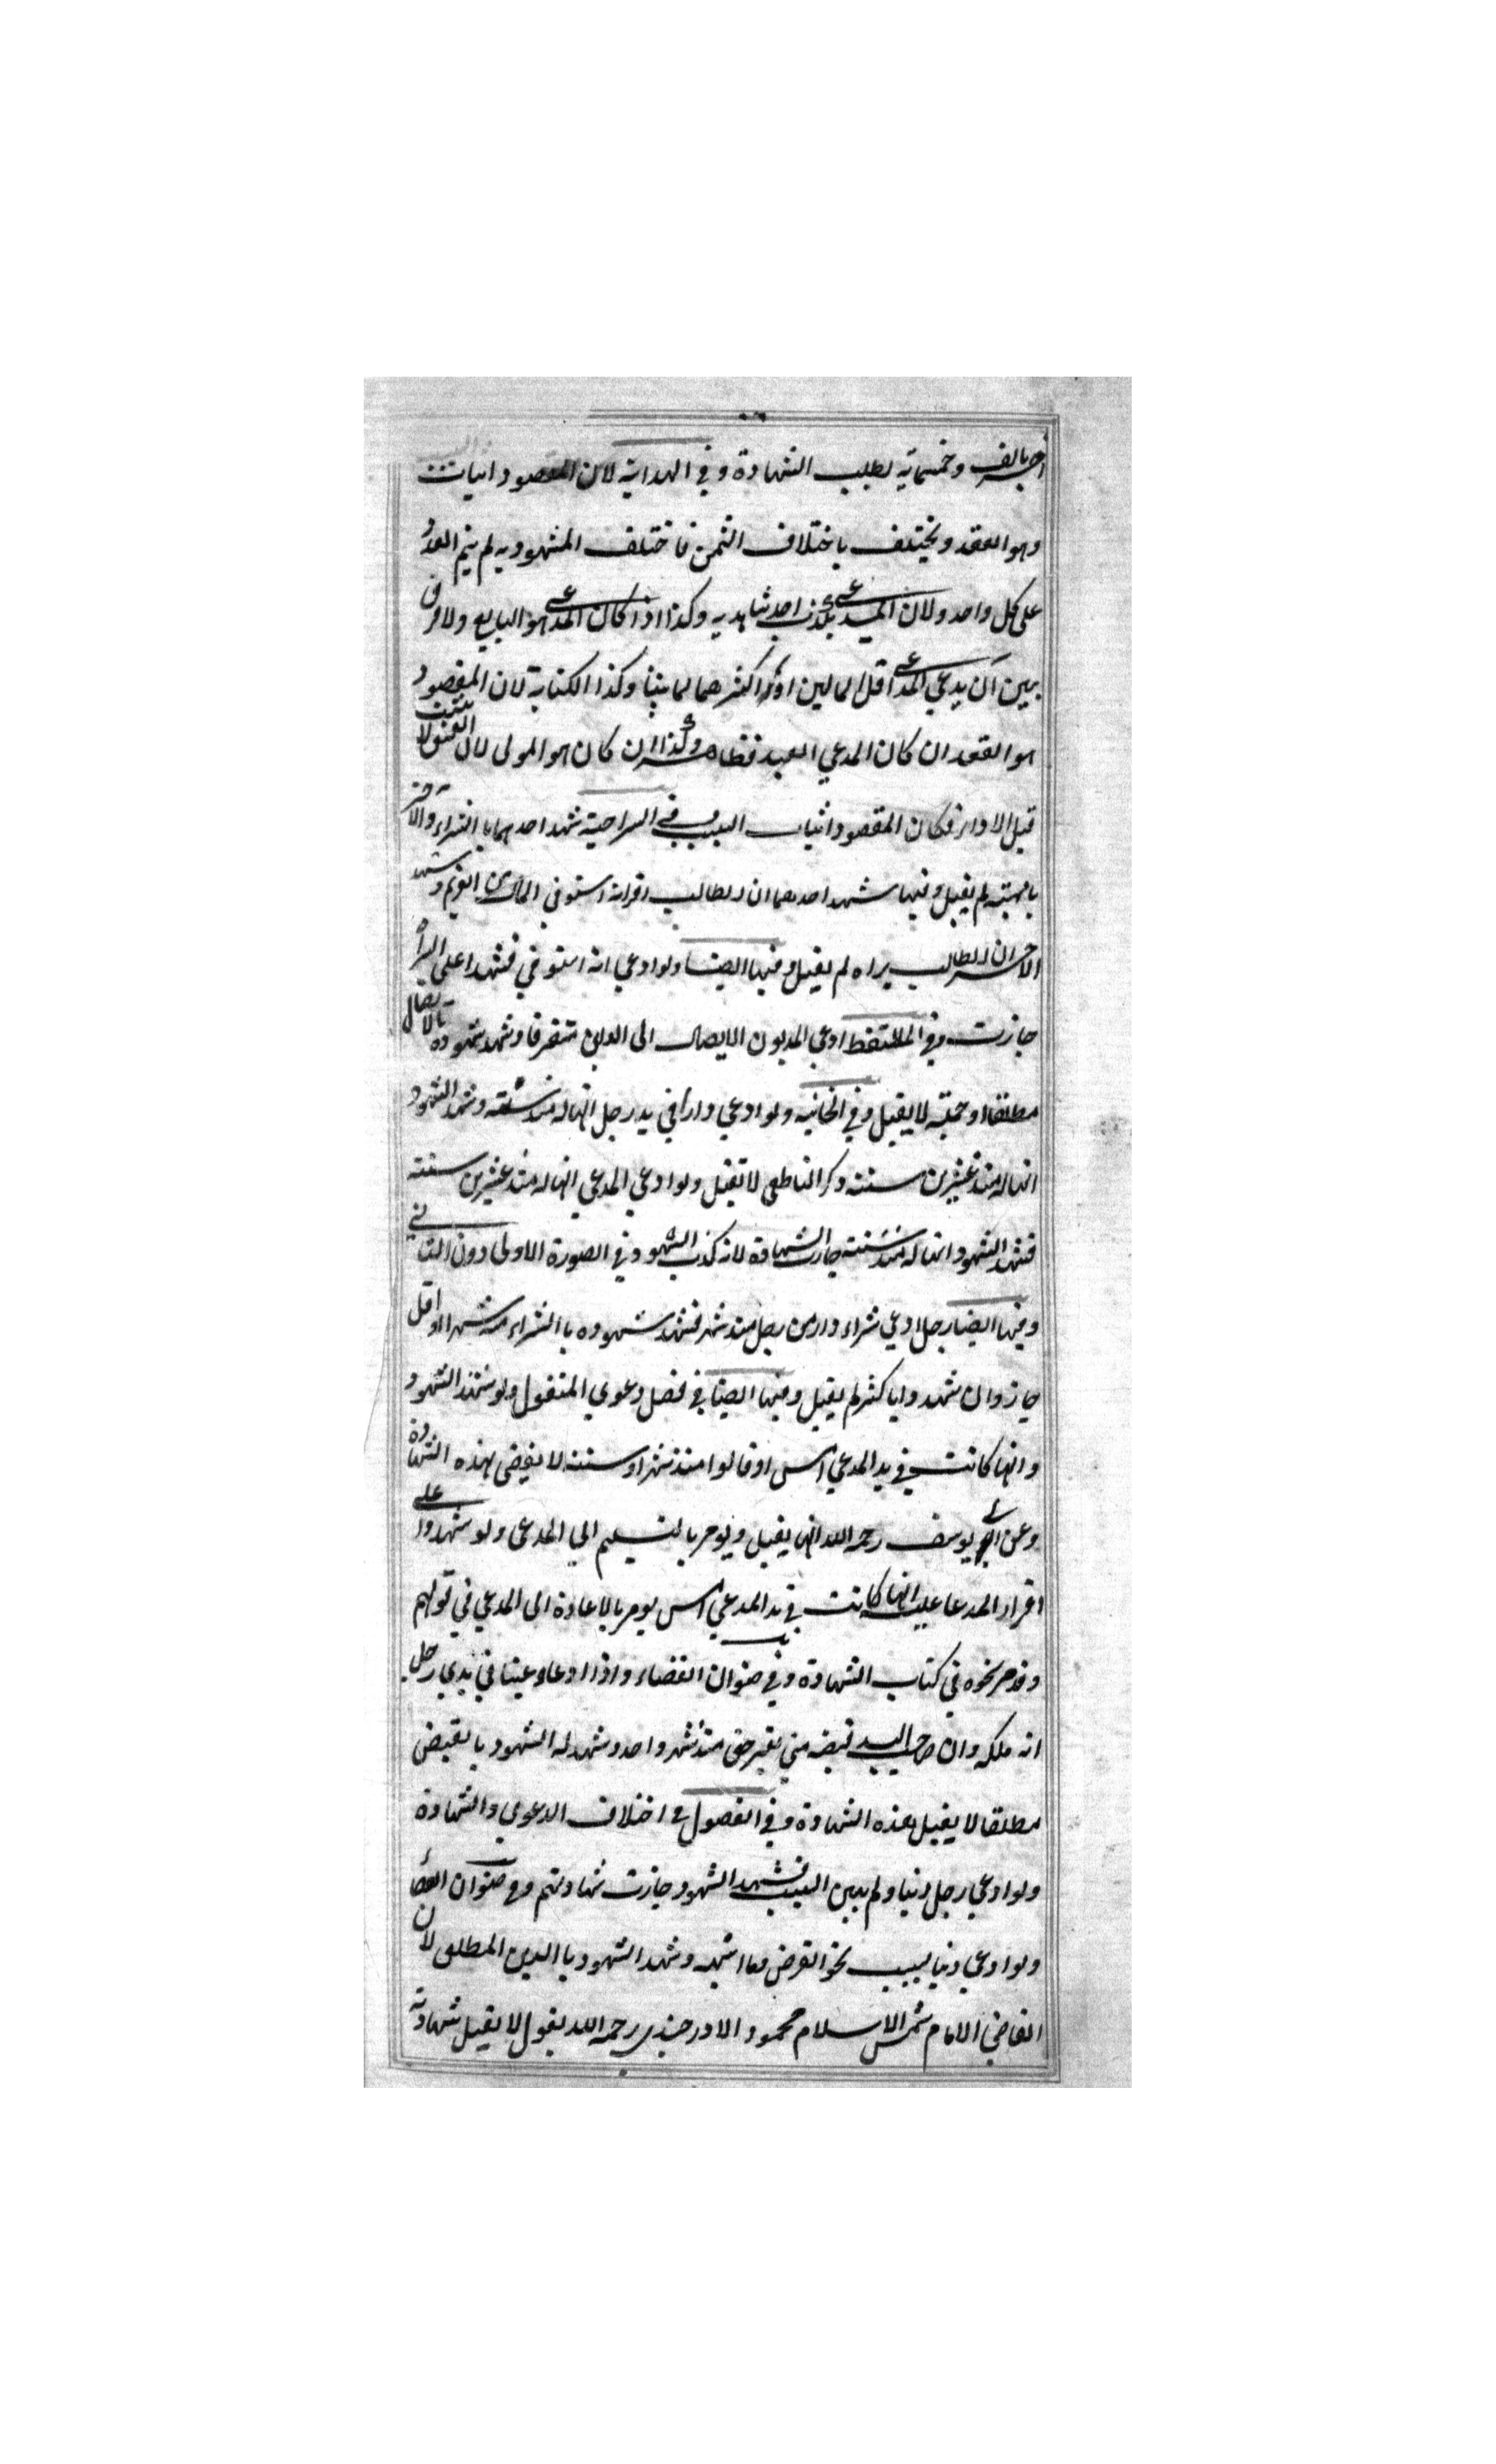 اخر بالف وخمسماية بطلب الشهادة وفي الهداية لان المقصود اثبات
وهو العقد ويختلف باختلاف الثمن فاختلف المشهود به لم يتم العدد
على كل واحد ولان المدعي يكذب احد شاهديه وكذا اذا كان المدعي هو البايع ولا فرق
بين ان يدعي المدعي اقل المالين او اكثرهما لما بينا وكذا الكتابة لان المقصود
هو العقد ان كان المدعي العبد فظاهر وكذا ان كان هو المولى لان العتق لا يثبت
قبل الاداء فكان المقصود اثبات السبب في السراجية شهد احدهما بالشراء والآخر
بالهبة لم يقبل وفيها شهد احدهما ان الطالب اقر انه استوفى المال من الغريم وشهد
الاخر ان الطالب براه لم يقبل وفيها ايضا ولو ادعي انه استوفي فشهدا على البرأ
جازت وفي الملتقط ادعي المديون الايصال الى الداين متفرقا وشهد شهوده بالايصال
مطلقا او جملة لا يقبل وفي الخانيه ولو ادعي دارا في يد رجل انها له منذ سنة وشهد الشهود
انها له منذ عشرين سنة ذكر الناطفي لا تقبل ولو ادعي المدعي انها له منذ عشرين سنة
فشهد الشهود انها له منذ سنة جازت الشهادة لانه كذب الشهود في الصورة الاولى دون الثاني
وفيها ايضا رجل ادعي شراء دار من رجل منذ شهر فشهد شهوده بالشراء منذ شهر او اقل
جاز وان شهدوا باكثر لم يقبل وفيها ايضا في فصل دعوي المنقول ولو شهد الشهود
وانها كانت في يد المدعي امس او قالوا منذ شهر او سنة لا يقضى بهذه الشهادة
وعن ابي يوسف رحمه الله انها يقبل ويومر بالتسليم الي المدعى ولو شهدوا على
اقرار المدعا عليه انها كانت في يد المدعي امس يومر بالاعادة الى المدعي في قولهم
وقد مر نحوه في كتاب الشهادة وفي صنوان القضاء واذا ادعاء عينا في يدي رجل
انه ملكه وان صاحب اليد قبضه مني بغير حق منذ شهر واحد وشهد له الشهود بالقبض
مطلقا لا يقبل هذه الشهادة وفي الفصول في اختلاف الدعوي والشهادة
ولو ادعي رجل دينا ولم يبين السبب فشهد الشهود جازت شهادتهم وفي صنوان القضأ
ولو ادعي دينا بسبب نحو القرض وما اشبهه وشهد الشهود بالدين المطلق لان
القاضي الامام شمس الاسلام محمود الاوزجندي رحمه الله يقول لا يقبل شهادته